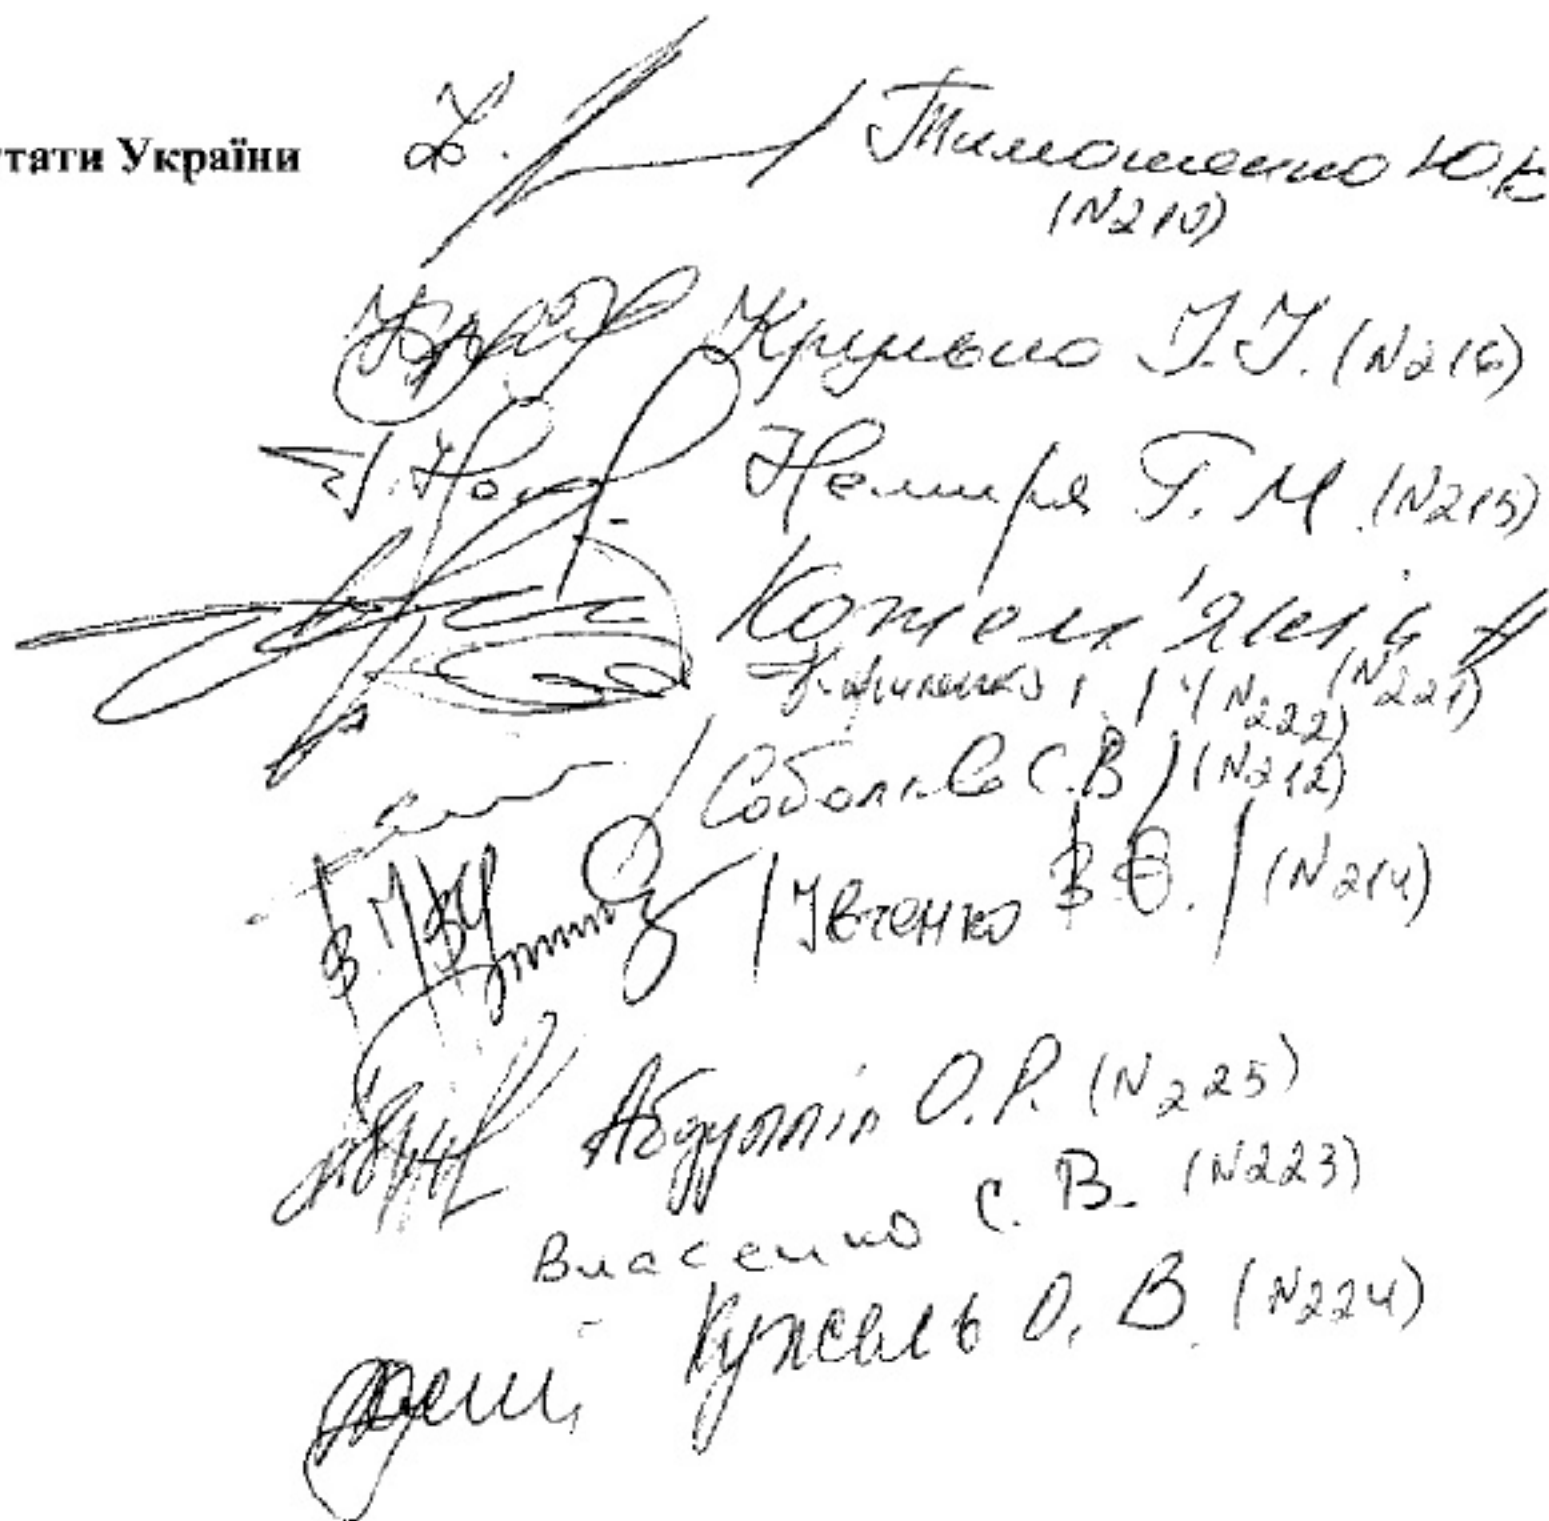 тати України
Тимошенко Ю.В
(N210)
Крулько І.І. (N216)
Немиря Г. М. (N215)
Кожем'якін А
(N221)
(N222)
Соболєв С.В / (N212)
/ Івченко В.Є. / (N214)
Абдуллін О.Р. (N225)
Власенко С. В. (N223)
Кужель О. В. (N224)